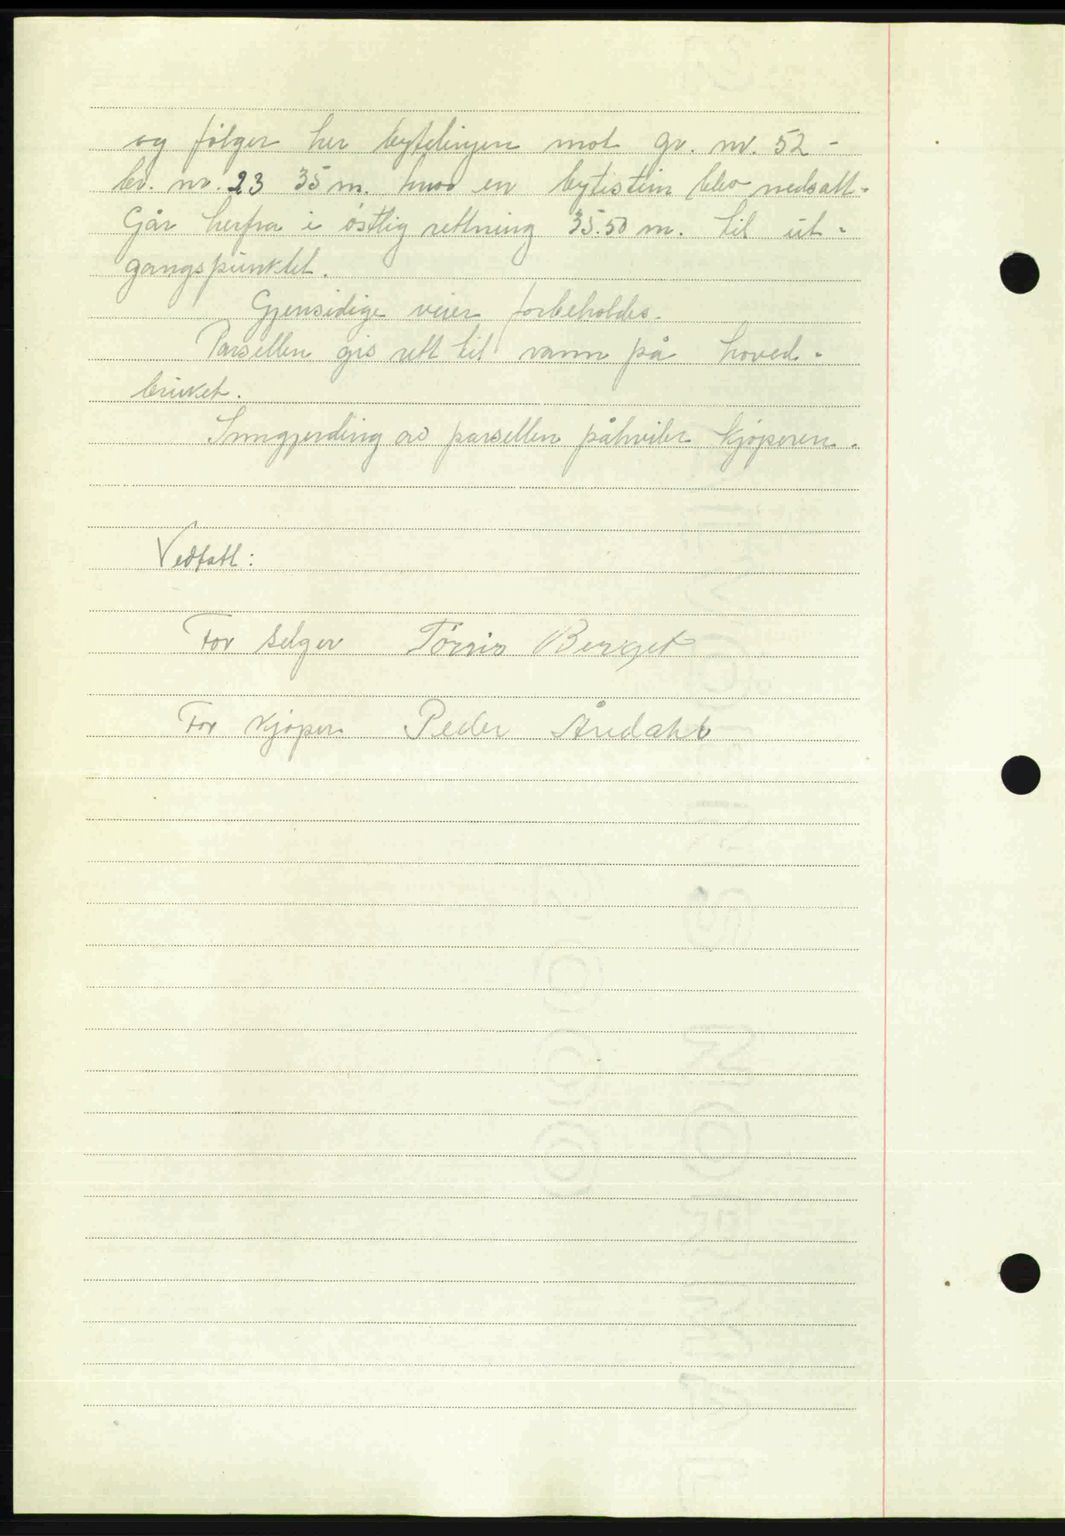 og følger her bytelinjen mot gr. nr. 52 -
br. nr. 23 35 m. hvor en bytistein blev nedsatt.
Går herfra i østlig rettning 35.50 m. til ut-
gangspunktet.
Gjensidige veier forbeholdes.
Parsellen gis rett til vann på hoved-
bruket.
Inngjerding av parsellen påhviler kjøperen.
Vedtatt:
For selger Tørris Berget
For kjøper Peder Årdahl